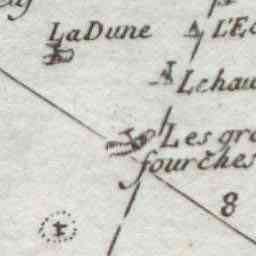 La Dune
L'E
Lchau
Les gra
fourches
8